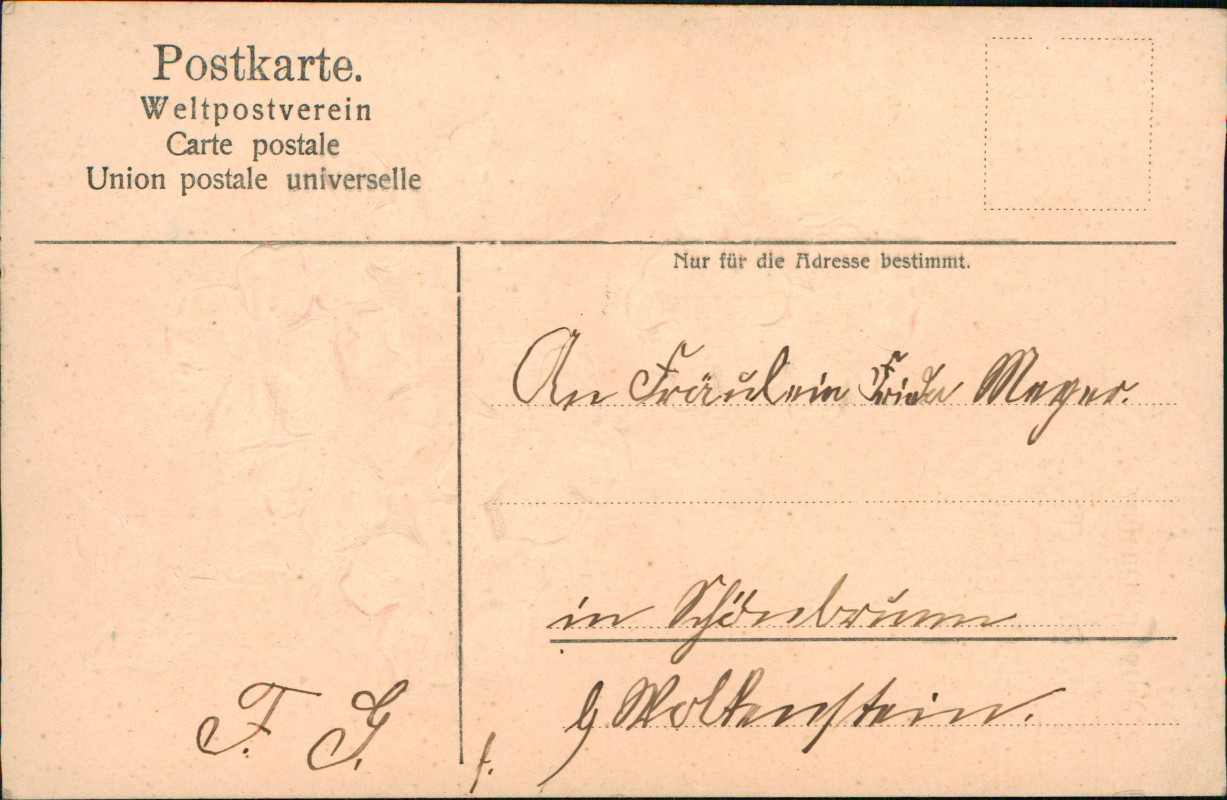 Postkarte.
Weltpostverein
Carte postale
Union postale universelle
Nur für die Adresse bestimmt.
An Fräulein Frida Meyer.
in Schönbrunn
b Wolkenstein.
F. G.